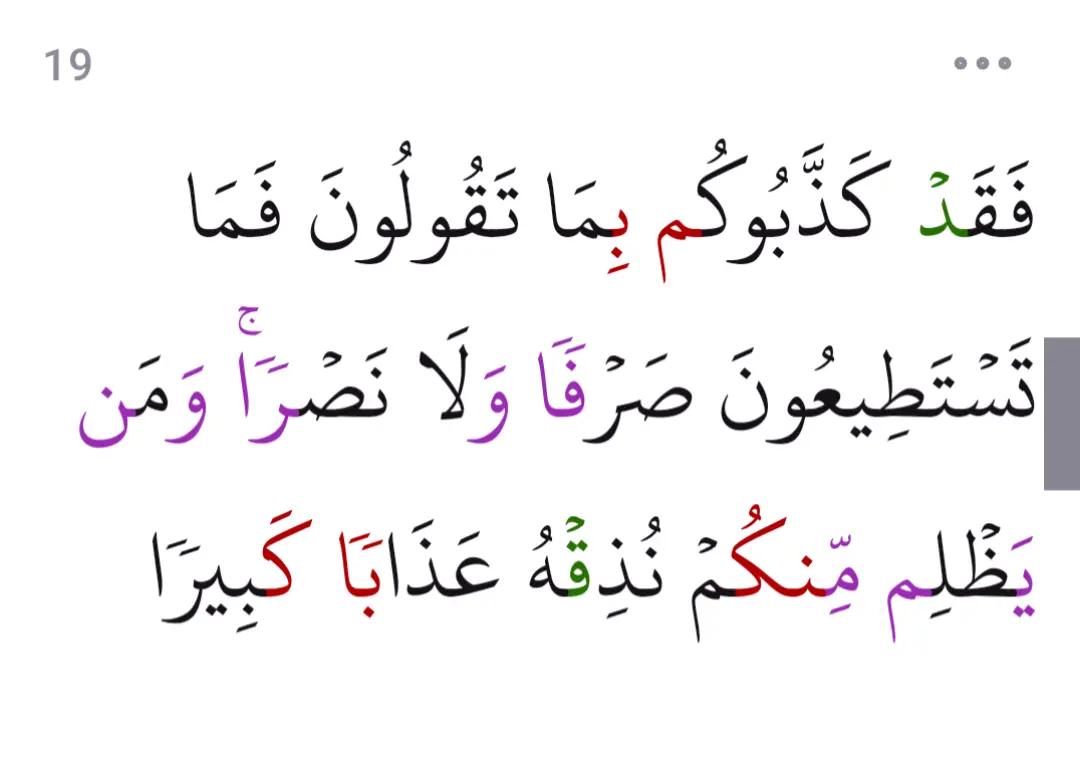 19
فَقَدۡ كَذَّبُوكُم بِمَا تَقُولُونَ فَمَا
تَسۡتَطِيعُونَ صَرۡفٗا وَلَا نَصۡرٗاۚ وَمَن
يَظۡلِم مِّنكُمۡ نُذِقۡهُ عَذَابٗا كَبِيرٗا